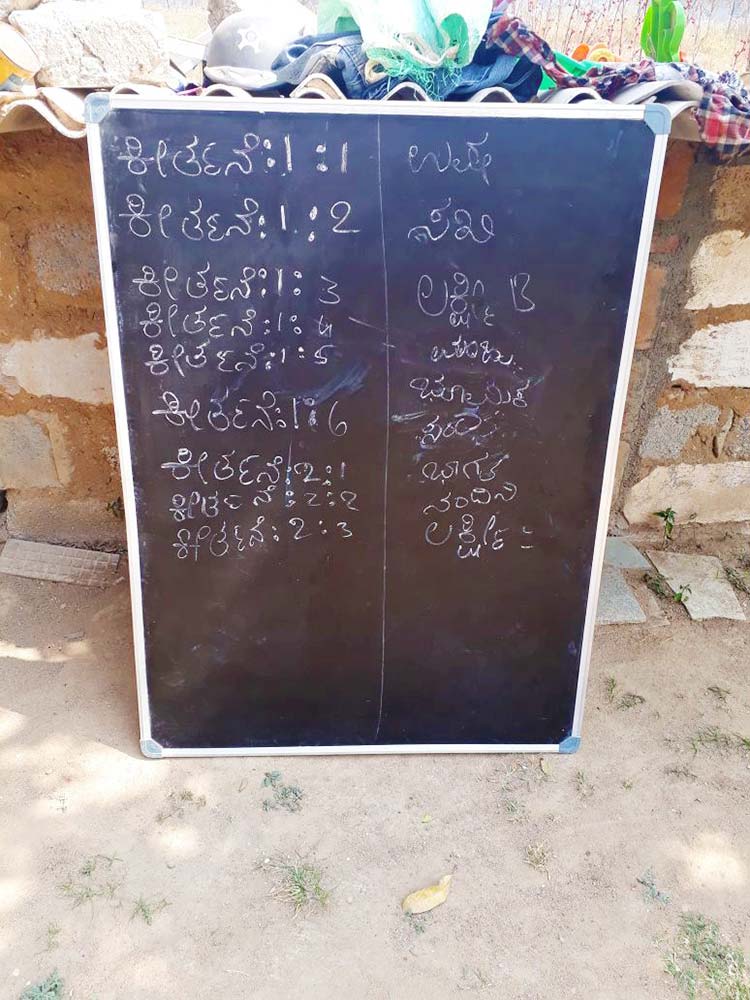 ಕೀರ್ತನೆ:1:1 ಉಷ
ಕೀರ್ತನೆ:1:2 ಸಖಿ
ಕೀರ್ತನೆ:1:3 ಲಕ್ಷ್ಮೀ B
ಕೀರ್ತನೆ:1:4
ಕೀರ್ತನೆ:1:5 ಭೂಮಿಕ
ಕೀರ್ತನೆ:1:6
ಕೀರ್ತನೆ:2:1 ಭಾಗ್ಯ
ಕೀರ್ತನೆ:2:2 ನಂದಿನಿ
ಕೀರ್ತನೆ:2:3 ಲಕ್ಷ್ಮೀ